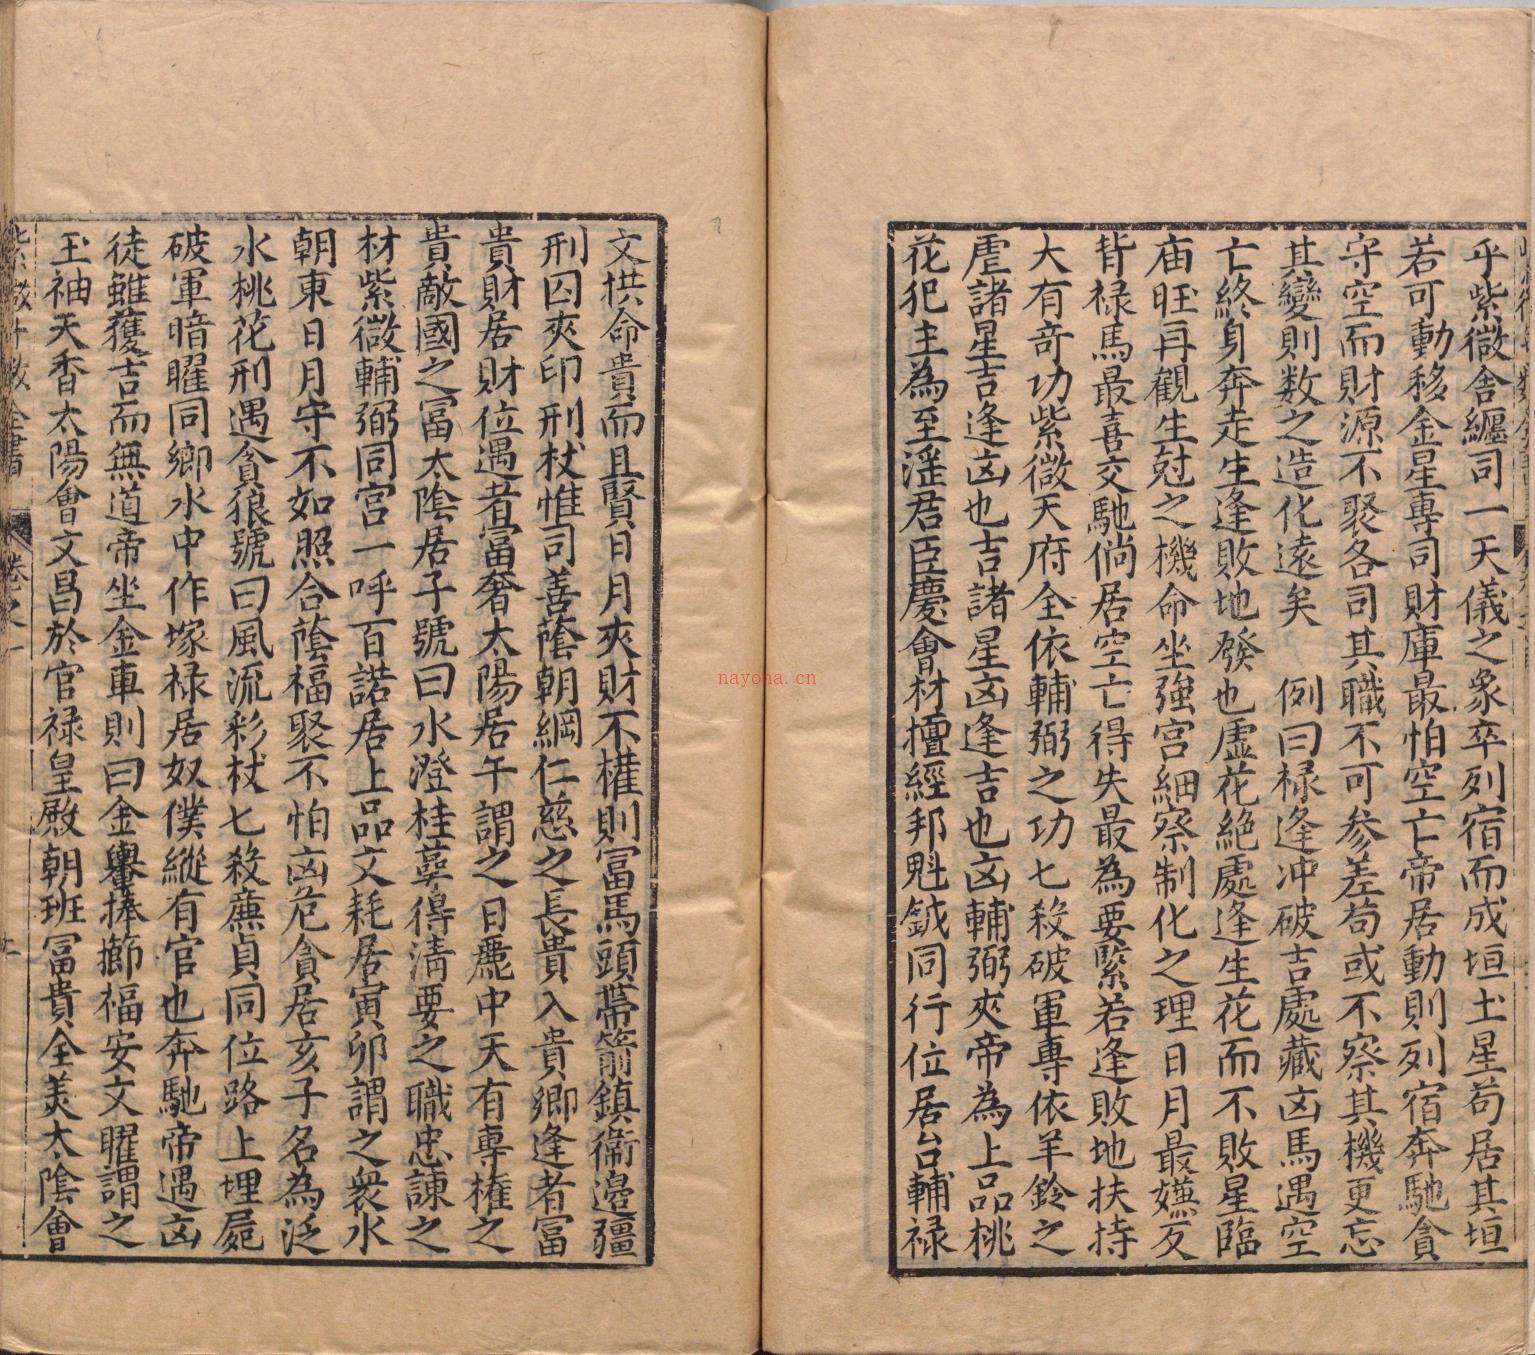 乎紫微舍纒司一天儀之象卒列宿而成垣土星苟居其垣
若可動移金星專司財庫最怕空亡帝居動則列宿奔馳貪
守空而財源不聚各司其職不可參差苟或不察其機更忘
其變則数之造化遠矣　例曰禄逢冲破吉處藏凶馬遇空
亡終身奔走生逢敗地發也虚花絶處逢生花而不敗星臨
庙旺再觀生尅之機命坐強宫細察制化之理日月最嫌反
背禄馬最喜交馳倘居空亡得失最為要緊若逢敗地扶持
大有竒功紫微天府全依輔弼之功七殺破軍專依羊鈴之
虐諸星吉逢凶也吉諸星凶逢吉也凶輔弼夾帝為上品桃
花犯主為至淫君臣慶會材擅經邦魁鉞同行位居台輔禄
文拱命貴而且賢日月夾財不權則冨馬頭帶箭鎮衞邉疆
刑囚夾印刑杖惟司善蔭朝綱仁慈之長貴入貴郷逢者冨
貴財居財位遇者富奢太陽居午謂之日麗中天有專權之
貴敵國之冨太陰居子號曰水澄桂蕚得清要之職忠諫之
材紫微輔弼同宫一呼百諾居上品文耗居寅卯謂之衆水
朝東日月守不如照合蔭福聚不怕凶危貪居亥子名為泛
水桃花刑遇貪狼號曰風流彩杖七殺廉貞同位路上埋屍
破軍暗曜同鄉水中作塚禄居奴僕縱有官也奔馳帝遇凶
徒雖獲吉而無道帝坐金車則曰金轝捧櫛福安文曜謂之
玉袖天香太陽會文昌於官禄皇殿朝班冨貴全美太陰會
紫微斗数全書　卷之一
nayona.cn